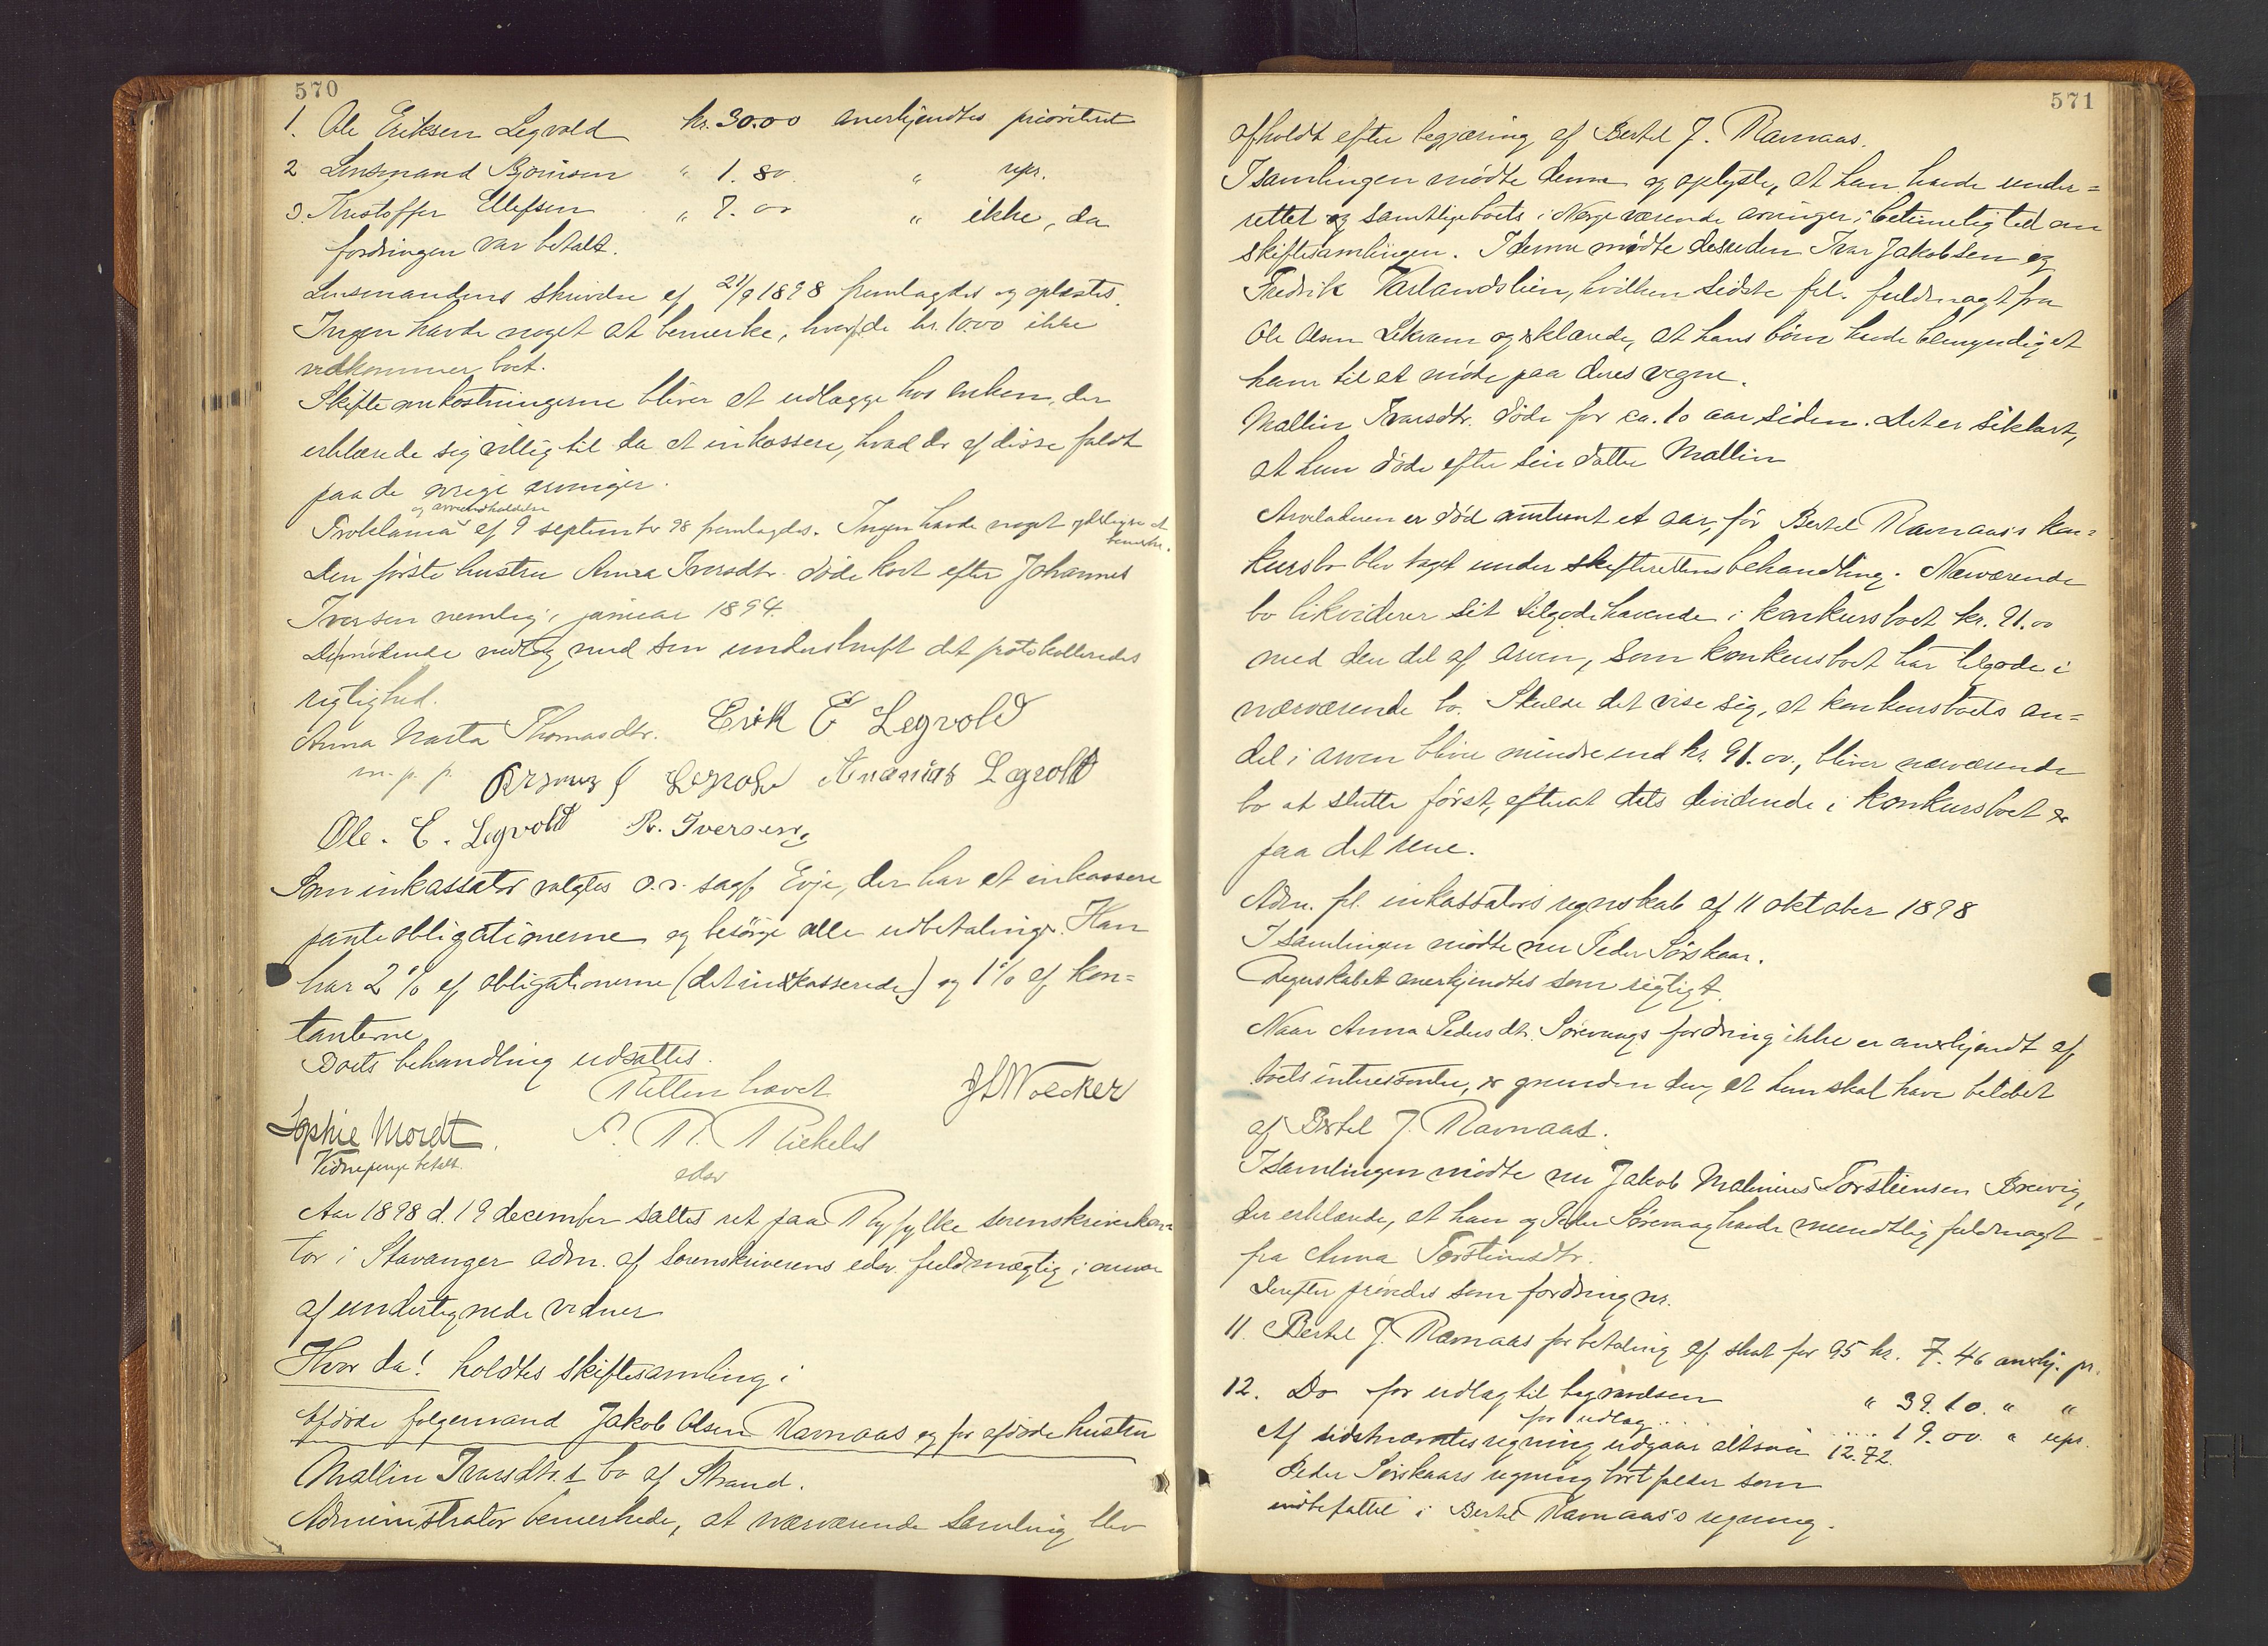 570
1. Ole Eriksen Legvold kr. 30.00 anerkjendtes prioriteret
2 Lensmand Bjønison " 1. 80 " upr.
3. Kristoffer Ellefsen " 7. 00 " ikke, da
fordringen var betalt.
Lensmandens skrivelse af 21/9 1898 fremlagdes og oplæstes.
Ingen havde noget at bemerke, hvorfor de kr. 10.00 ikke
vedkommer boet.
Skifteomkostningerne bliver at udlægge hos enken, der
erklærede sig villig til da at inkassere, hvad der af disse faldt
paa de øvrige arvinger.
og avisindholdelse
Proklama af 9 september 98 fremlagdes. Ingen havde noget yderligere at
bemerke.
Den første hustru Anna Iversdtr. døde kort efter Johannes
Iversen nemlig i januar 1894.
De mødende vedtog med sin underskrift det protokolleredes
rigtighed.
Anna Marta Thomasdtr. Erik E Legvold
m. p. p. Legvold Ananias Legvold
Ole. E. Legvold R. Iversen
Som inkassator valgtes o.r. sagf. Evje, der har at inkassere
panteobligationerne og besørge alle udbetalinger. Han
har 2 % af obligationerne (det inkasserede) og 1 % af kon=
tanterne
Boets behandling udsattes.
Retten hævet
JLWoecker
Sophie Mordt. P. R. Riekeles
Vidnepenge betalt. edsv
Aar 1898 d. 19 december sattes ret paa Ryfylke sorenskriverkon=
tor i Stavanger adm. af sorenskriverens edsv. fuldmægtig i overvær
af undertegnede vidner
Hvor da! holdtes skiftesamling i
afdøde følgemand Jakob Olsen Ravnaas og før afdøde hustru
Mallin Ivarsdtr.s bo af Strand.
Administrator bemerkede, at nærværende samling blev
571
afholdt efter begjæring af Bertel J. Ravnaas.
I samlingen mødte denne og oplyste, at han havde under=
rettet og samtlige boets i Norge værende arvinger i betimelig tid om
skiftesamlingen. I denne mødte desuden Ivar Jakobsen og
Fredrik Vaslandslien, hvilken sidste frl. fuldmagt fra
Ole Olsen Lekvam og erklærede, at hans børn havde bemyndiget
ham til at møde paa deres vegne.
Mallin Ivarsdtr. døde for ca. 10 aar siden. Det er sikkert,
at hun døde efter sin datter Mallin
Arveladeren er død omtrent et aar, før Bertel Ravnaas's kon=
kursbo blev taget under skifterettens behandling. Nærværende
bo likviderer sit tilgodehavende i konkursboet kr. 91.00
med den del af arven, som konkursboet har tilgode i
nærværende bo. Skulde det vise sig, at konkursboets an=
del i arven bliver mindre end kr. 91.00, bliver nærværende
bo at slutte først, efterat dets dividende i konkursboet er
paa det rene.
Adm. frl. inkassators regnskab af 11 oktober 1898
I samlingen mødte nu Peder Sørskaar.
Regnskabet anerkjendtes som rigtigt.
Naar Anna Pedersdtr. Sørevaags fordring ikke er anerkjendt af
boets interessenter, er grunden den, at hun skal have beløbet
af Bertel J. Ravnaas.
I samlingen mødte nu Jakob Malinius Torsteinsen Brevig,
der erklærede, at han og Peder Sørevaag havde mundtlig fuldmagt
fra Anna Torsteinsdtr.
Derefter prøvedes som fordring nr.
11. Bertel J. Ravnaas for betaling af skat for 95 kr. 7.46 anerkj. pr.
12. Do for udlag til begravelsen " 39.10 " "
for udlag .... 19.00 " upr.
Af sidstnævntes regning udgaar altsaa 12.72.
Peder Sørskaars regning bortfalder som
indbefattet i Bertel Ravnaas's regning.